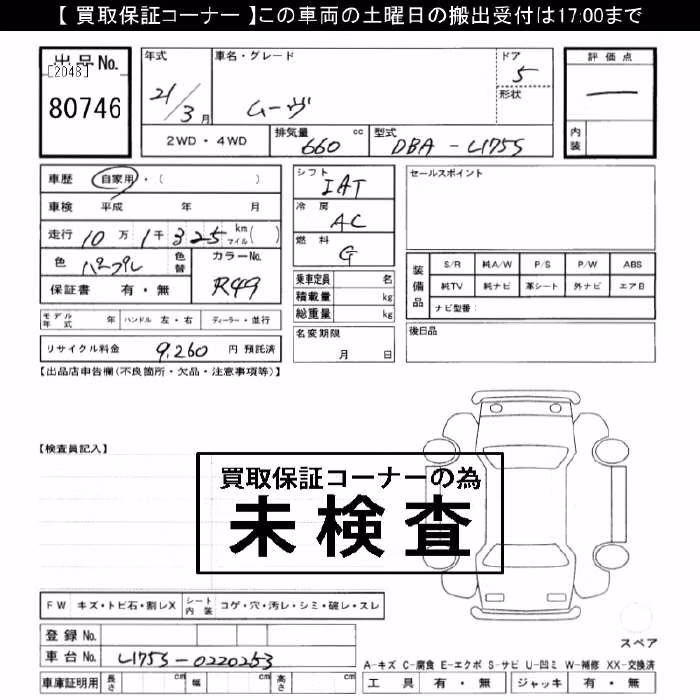 【 買取保証コーナー 】この車両の土曜日の搬出受付は17:00まで
出品No. [2048] 80746
年式 21/3月
車名・グレード ムーヴ
ドア 5
形状
2WD・4WD
排気量 660 cc
型式 DBA-L175S
評価点 —
内装
車歴 自家用・( )
車検 平成 年 月
走行 10万1千325 km マイル( )
色 パープル 色替
カラーNo. R49
保証書 有・無
シフト IAT
冷房 AC
燃料 G
乗車定員 名
積載量 kg
総重量 kg
名変期限 月 日
セールスポイント
装備品 S/R 純A/W P/S P/W ABS
純TV 純ナビ 革シート 外ナビ エアB
ナビ型番:
後日品
モデル年式 年 ハンドル 左・右 ディーラー・並行
リサイクル料金 9,260 円 預託済
【出品店申告欄(不良箇所・欠品・注意事項等)】
【検査員記入】
買取保証コーナーの為
未検査
FW キズ・トビ石・割レX シート内装 コゲ・穴・汚レ・シミ・破レ・スレ
登録No.
車台No. L175S-0220253
車庫証明用 長さ cm 幅 cm 高さ cm
スペア
A-キズ C-腐食 E-エクボ S-サビ U-凹ミ W-補修 XX-交換済
工具 有・無 ジャッキ 有・無